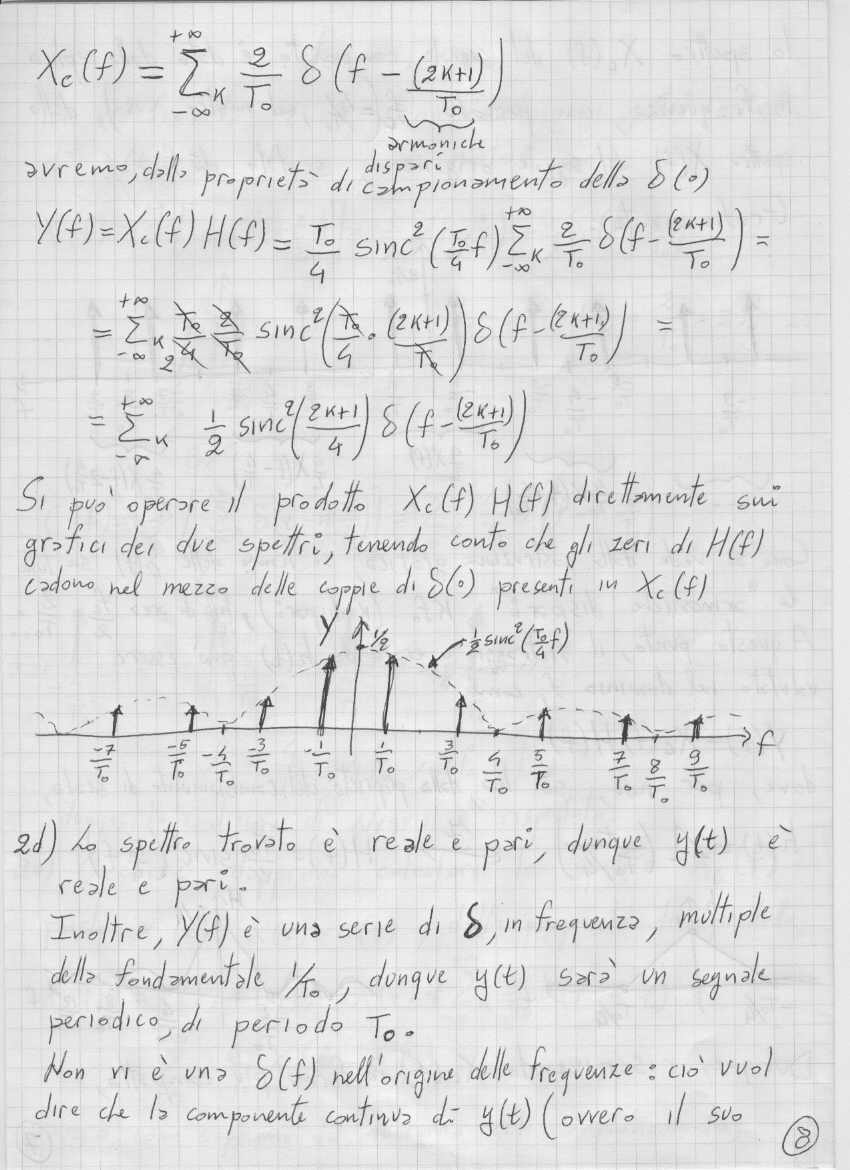 Xc(f) = Σ_{-∞ K}^{+∞} 2/T₀ δ(f - (2K+1)/T₀)
armoniche
dispari
avremo, dalla proprietà di campionamento della δ(∘)
Y(f) = Xc(f) H(f) = T₀/4 sinc²(T₀/4 f) Σ_{-∞ K}^{+∞} 2/T₀ δ(f - (2K+1)/T₀) =
= Σ_{-∞ K}^{+∞} T₀/4 2/T₀ sinc²(T₀/4 · (2K+1)/T₀) δ(f - (2K+1)/T₀) =
2
= Σ_{-∞ K}^{+∞} 1/2 sinc²((2K+1)/4) δ(f - (2K+1)/T₀)
Si può operare il prodotto Xc(f) H(f) direttamente sui
grafici dei due spettri, tenendo conto che gli zeri di H(f)
cadono nel mezzo delle coppie di δ(∘) presenti in Xc(f)
Y 1/2 1/2 sinc²(T₀/4 f)
-7/T₀ -5/T₀ -4/T₀ -3/T₀ -1/T₀ 1/T₀ 3/T₀ 4/T₀ 5/T₀ 7/T₀ 8/T₀ 9/T₀ f
2d) Lo spettro trovato è reale e pari, dunque y(t) è
reale e pari.
Inoltre, Y(f) è una serie di δ, in frequenza, multiple
della fondamentale 1/T₀, dunque y(t) sarà un segnale
periodico, di periodo T₀.
Non vi è una δ(f) nell'origine delle frequenze: ciò vuol
dire che la componente continua di y(t) (ovvero il suo
8